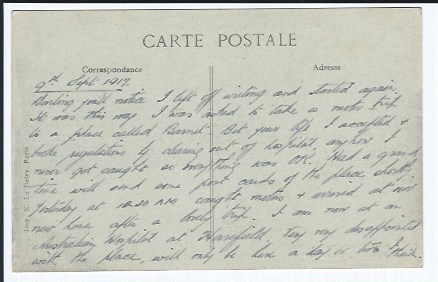 CARTE POSTALE
Correspondance
Adresse
9th Sept 1917
Darling you'll notice I left off writing and started again.
It was this way I was asked to take a motor trip
to a place called Barnet. Bet your life I accepted &
broke regulations by clearing out of hospital anyhow I
never got caught so everything was OK. Had a grand
time will send some post cards of the place shortly.
Yesterday at 10.30 AM caught motors & arrived at our
new home after a lovely trip. I am now at an
Australian Hospital at Harefield. Very my disappointed
with the place, will only be here a day or two I
think.
Imp. E. Le Deley, Paris